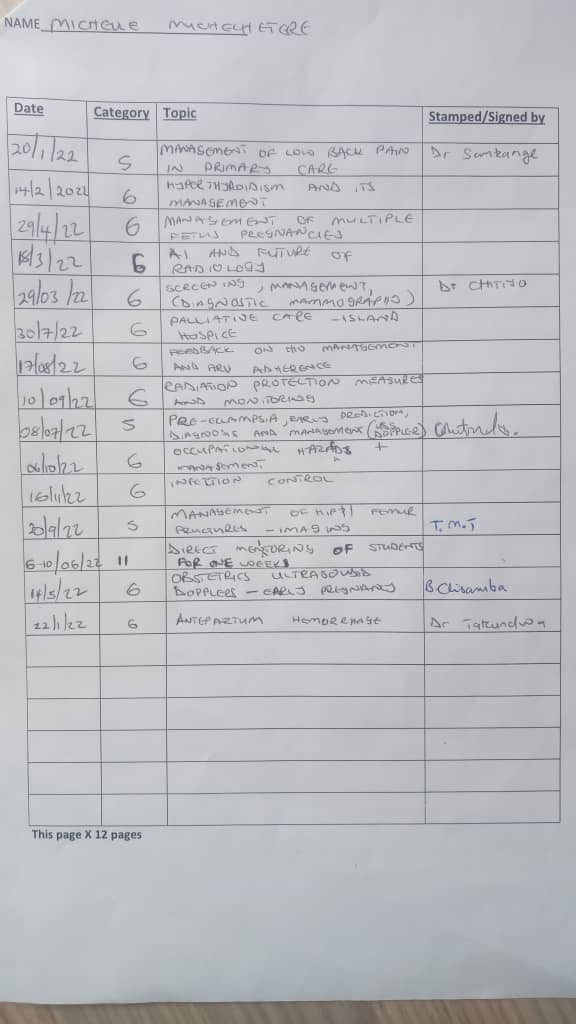 NAME MICHELLE
Date Category Topic Stamped/Signed by
20/1/22 5 MANAGEMENT OF LOW BACK PAIN
IN PRIMARY CARE Dr Samkange
14/2/2022 6 HYPERTHYROIDISM AND ITS
MANAGEMENT
29/4/22 6 MANAGEMENT OF MULTIPLE
FETUS PREGNANCIES
18/3/22 6 AI AND FUTURE OF
RADIOLOGY
29/03/22 6 SCREENING, MANAGEMENT,
(DIAGNOSTIC MAMMOGRAPHS) Dr
30/7/22 6 PALLIATIVE CARE - ISLAND
HOSPICE
17/08/22 6 FEEDBACK ON HIV MANAGEMENT
AND ARV ADHERENCE
10/09/22 6 RADIATION PROTECTION MEASURES
AND MONITORING
08/07/22 5 PRE-CLAMPSIA, EARLY PREDICTION,
DIAGNOSIS AND MANAGEMENT (USS DOPPLER)
06/10/22 6 OCCUPATIONAL HAZARDS +
MANAGEMENT
16/11/22 6 INFECTION CONTROL
20/9/22 5 MANAGEMENT OF HIP & FEMUR
FRUCTURES - IMAGING T.M.T
6-10/06/22 11 DIRECT MENTORING OF STUDENTS
FOR ONE WEEKS
14/5/22 6 OBSTETRICS ULTRASOUND
DOPPLERS - EARLY PREGNANCY B.Chisamba
22/1/22 6 ANTEPARTUM HEMORRHAGE Dr
This page X 12 pages